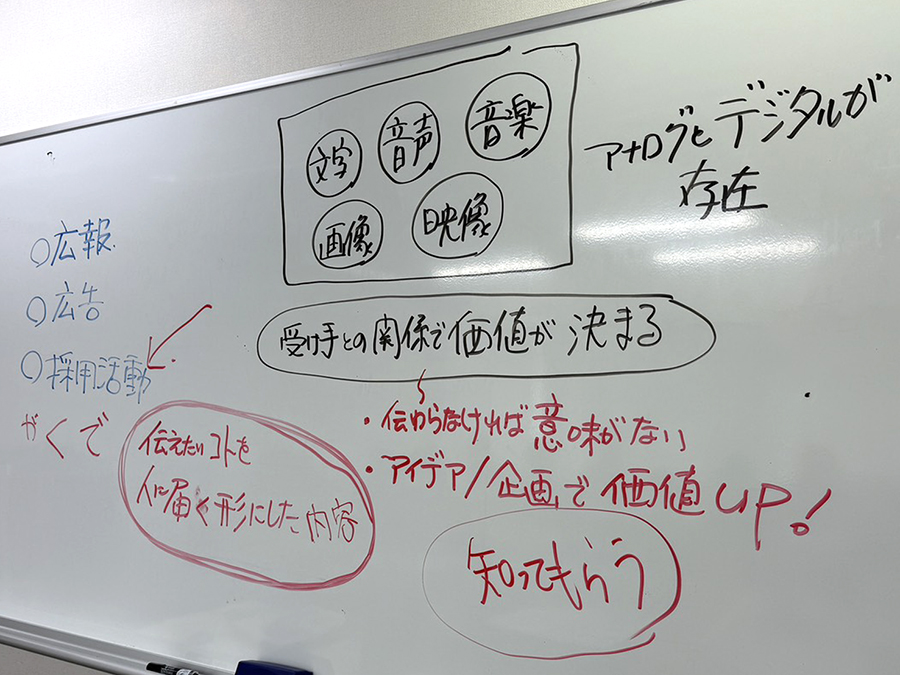 文字
音声
音楽
画像
映像
アナログとデジタルが
存在
○広報
○広告
○採用活動
受け手との関係で価値が決まる
・伝わらなければ意味がない
・アイデア/企画で価値UP!
伝えたいコトを
人に届く形にした内容
知ってもらう